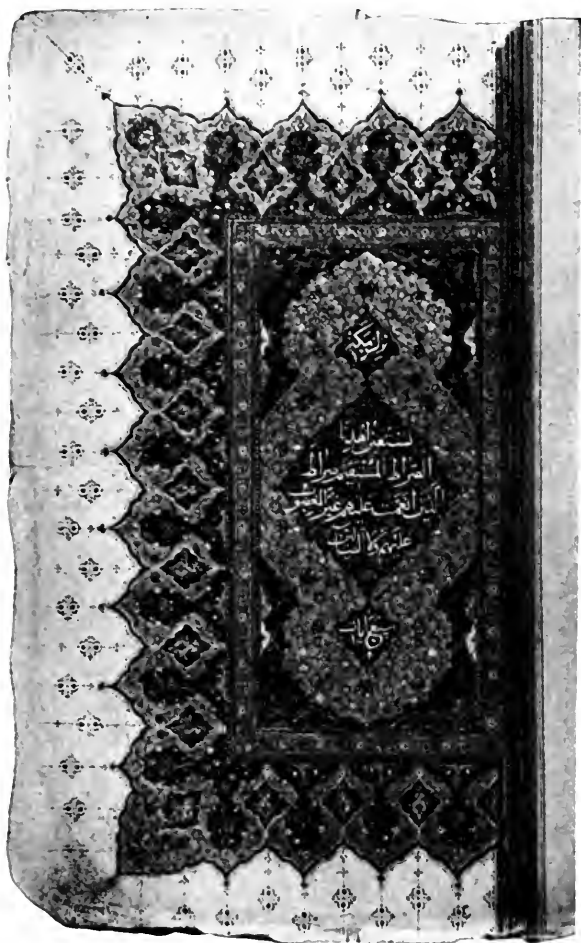 نزل بمكة
نستعين اهدنا
الصراط المستقيم صراط
الذين انعمت عليهم غير المغضوب
عليهم ولا الضالين
سبع ايات